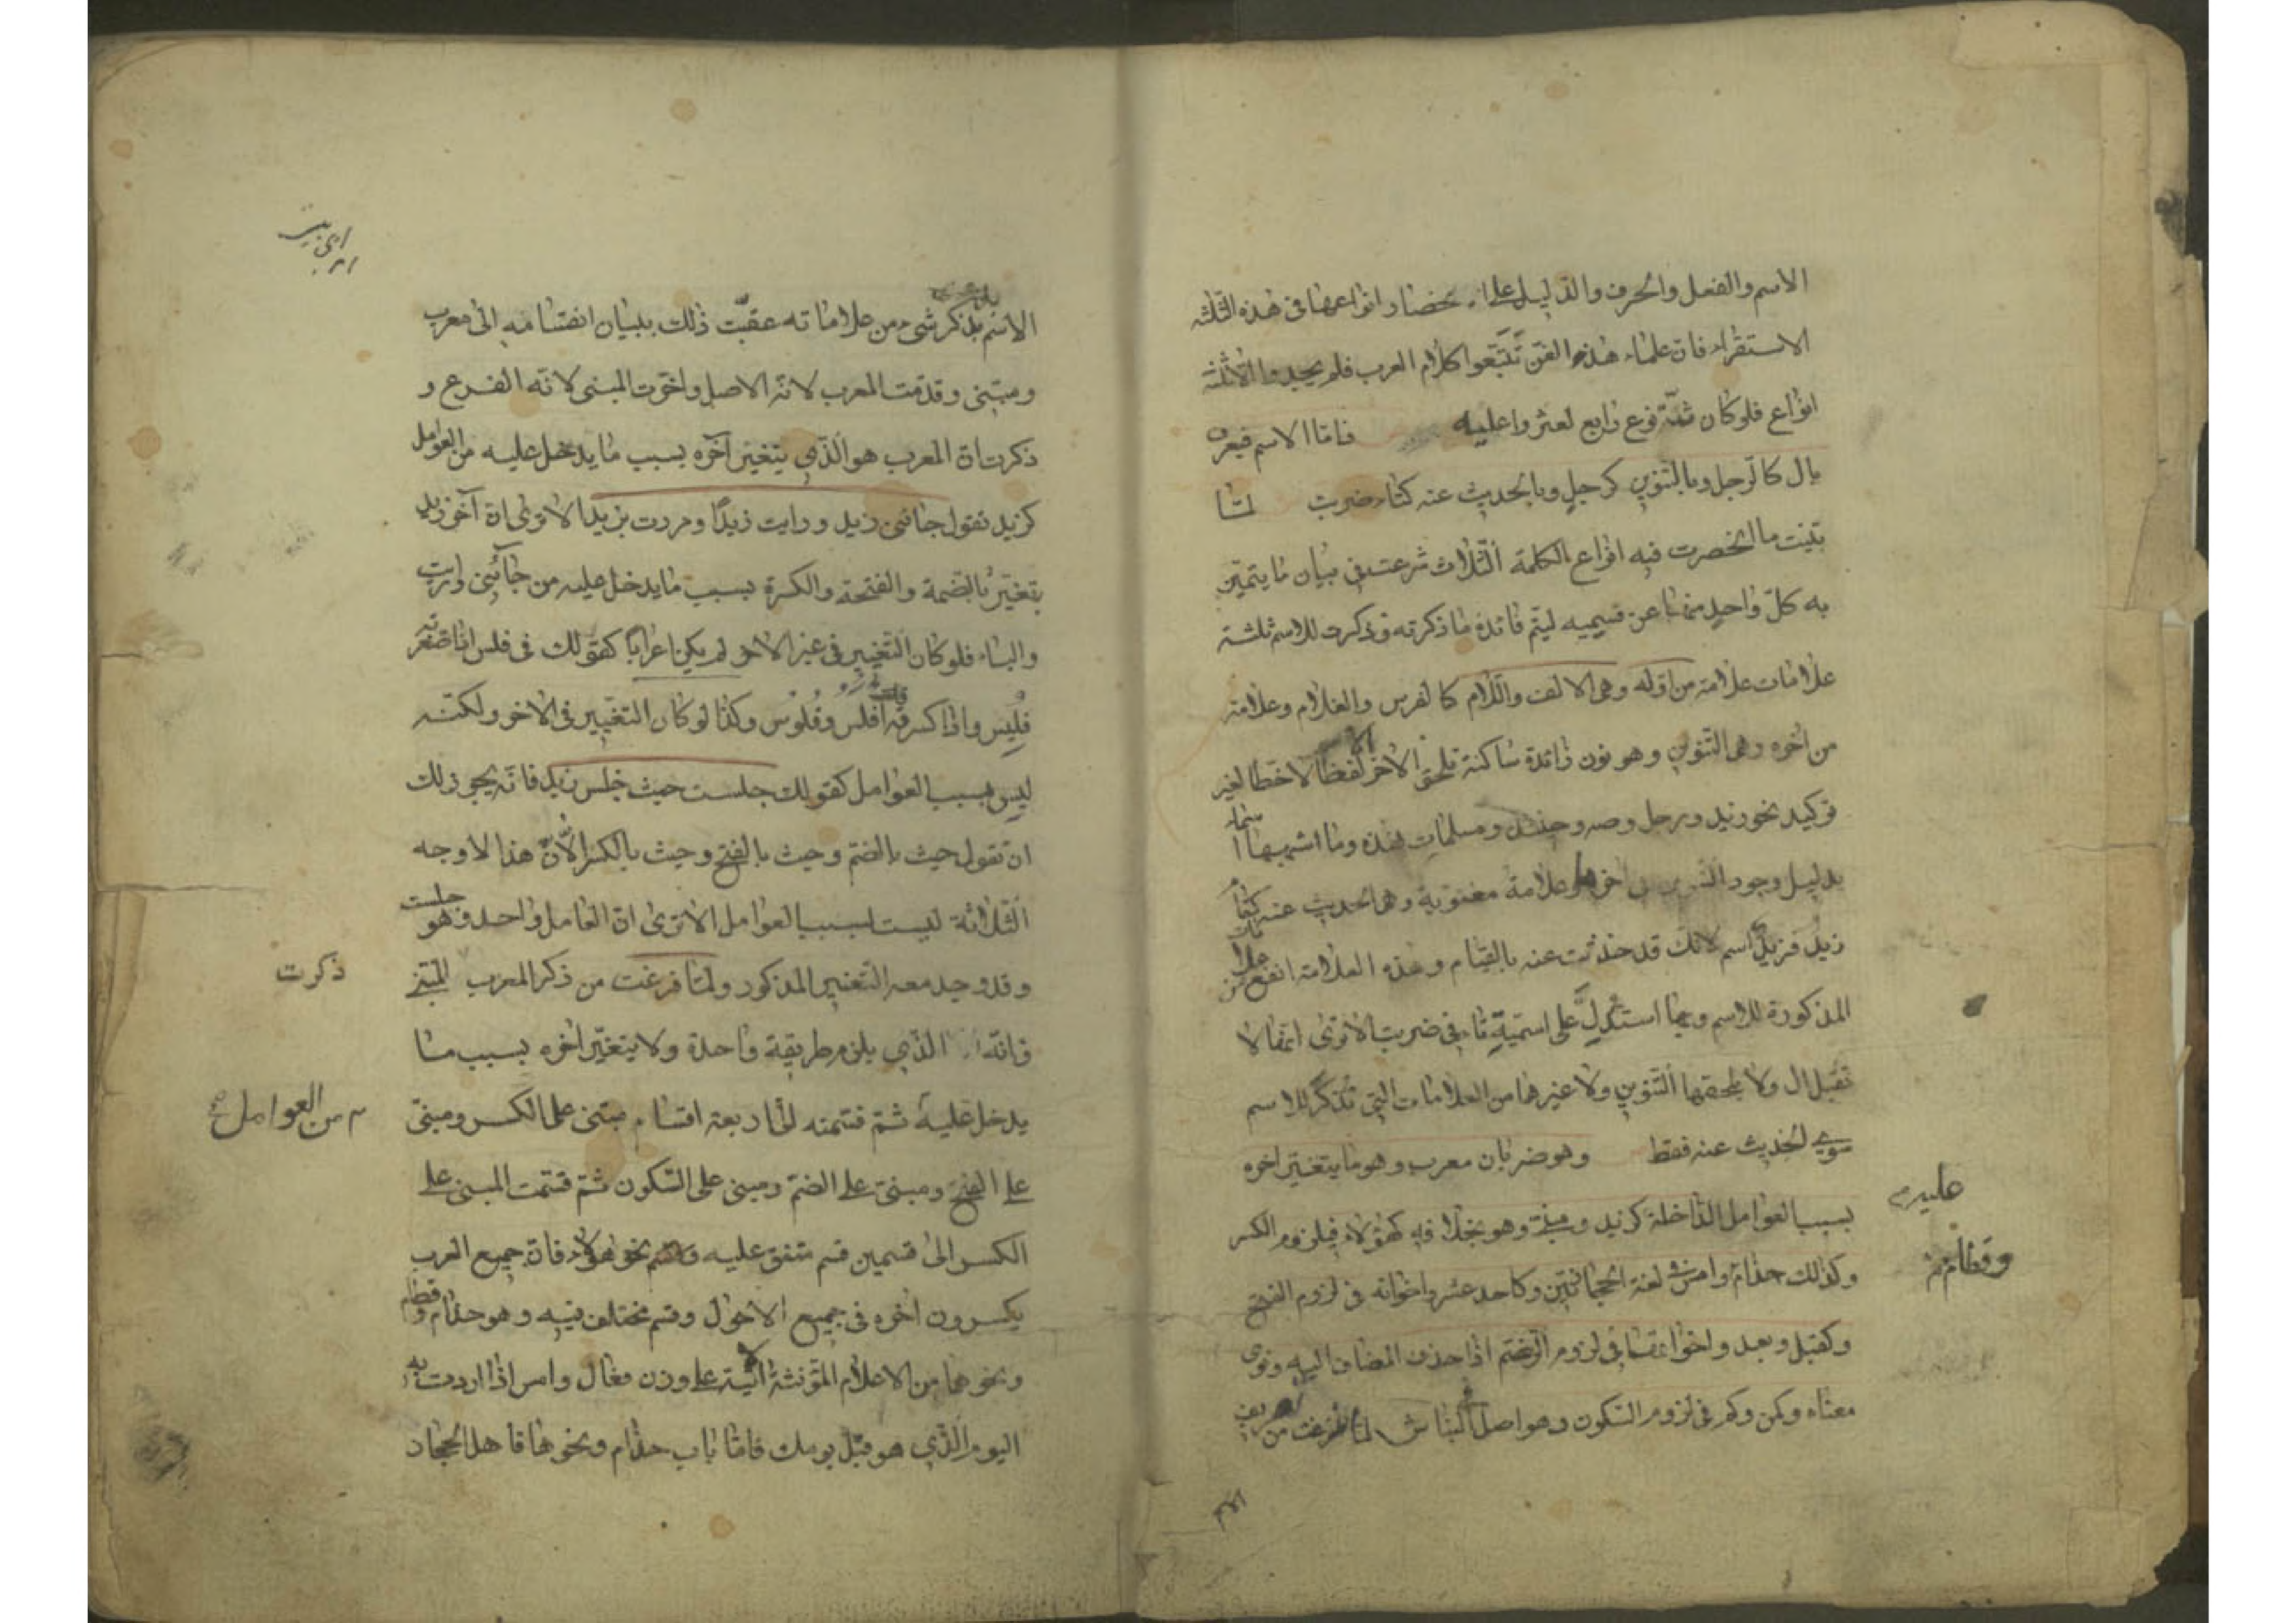 الاسم والفعل والحرف والدليل على انحصار انواعها فى هذه الثلثه
الاستقراء فان علماء هذه الفن تتبعوا كلام العرب فلم يجدوا الا ثلثة
انواع فلو كان ثمة نوع رابع لعثروا عليه فاما الاسم فيعرف
بال كالرجل وبالتنوين كرجل وبالحديث عنه كتاء ضربت لما
بينت ما انحصرت فيه انواع الكلمة الثلاث شرعت فى بيان ما يتميز
به كل واحد منها عن قسيميه ليتم فائدة ما ذكرته فذكرت للاسم ثلثة
علامات علامة من اوله وهى الالف واللام كالفرس والغلام وعلامة
من اخره وهى التنوين وهو نون زائدة ساكنة تلحق الاخر لفظا لا خطا لغير
توكيد نحو زيد ورجل وصه وحينئذ ومسلمات فهذه وما اشبهها اسماء
بدليل وجود التنوين فى اخرها وعلامة معنوية وهى الحديث عنه كقام
زيد فزيد اسم لانك قد حدثت عنه بالقيام وهذه العلامة انفع
المذكورة للاسم وبها استدل على اسمية تاء فى ضربت الا ترى انها لا
تقبل ال ولا يلحقها التنوين ولا غيرهما من العلامات التى تذكر للاسم
سوى الحديث عنه فقط وهو ضربان معرب وهو ما يتغير اخره
بسبب العوامل الداخلة كزيد ومبنى وهو بخلافه كهؤلاء فى لزوم الكسر
عليه
وكذلك حذام وامس فى لغة الحجازيين وكاحد عشر واخواته فى لزوم الفتح
وقطام
وكقبل وبعد واخواتهما فى لزوم الضم اذا حذف المضاف اليه ونوى
معناه وكمن وكم فى لزوم السكون وهو اصل البناء ش لما فرغت من تعريف
الاسم
الاسم بذكر شىء من علاماته عقبت ذلك ببيان انقسامه الى معرب
ومبنى وقدمت المعرب لانه الاصل واخرت المبنى لانه الفرع و
ذكرت ان المعرب هو الذى يتغير آخره بسبب ما يدخل عليه من العوامل
كزيد تقول جائنى زيد ورايت زيدا ومررت بزيد الا ترى ان آخر زيد
يتغير بالضمة والفتحة والكسرة بسبب ما يدخل عليه من جائنى ورايت
والباء فلو كان التغيير فى غير الاخر لم يكن اعرابا كقولك فى فلس اذا صغرته
فليس واذا كسرته قلت افلس وفلوس وكذا لو كان التغيير فى الاخر ولكنه
ليس بسبب العوامل كقولك جلست حيث جلس زيد فانه يجوز لك
ان تقول حيث بالضم وحيث بالفتح وحيث بالكسر الا ان هذا الاوجه
الثلاثة ليست بسبب العوامل الا ترى ان العامل واحد وهو جلست
وقد وجد معه التغيير المذكور ولما فرغت من ذكر المعرب المبنى
ذكرت
فانه الذى يلزم طريقة واحدة ولا يتغير اخره بسبب ما
يدخل عليه ثم قسمته الى اربعة اقسام مبنى على الكسر ومبنى
من العوامل صح
على الفتح ومبنى على الضم ومبنى على السكون ثم قسمت المبنى على
الكسر الى قسمين قسم متفق عليه وهو نحو هؤلاء فان جميع العرب
يكسرون اخره فى جميع الاحوال وقسم مختلف فيه وهو حذام وقطام
ونحوهما من الاعلام المؤنثة الاتية على وزن فعال وامس اذا اردت به
اليوم الذى هو قبل يومك فاما باب حذام ونحوها فاهل الحجاز